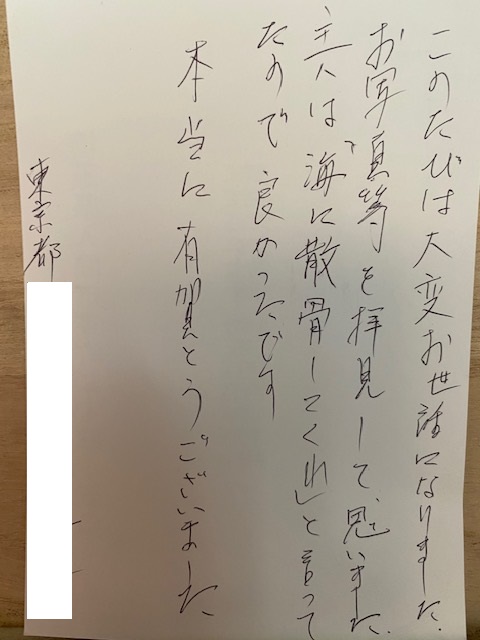 このたびは大変お世話になりました.
お写真等を拝見して、思いました.
主人は「海に散骨してくれ」と言って
たので良かったです
本当に有賀とうございました
東京都